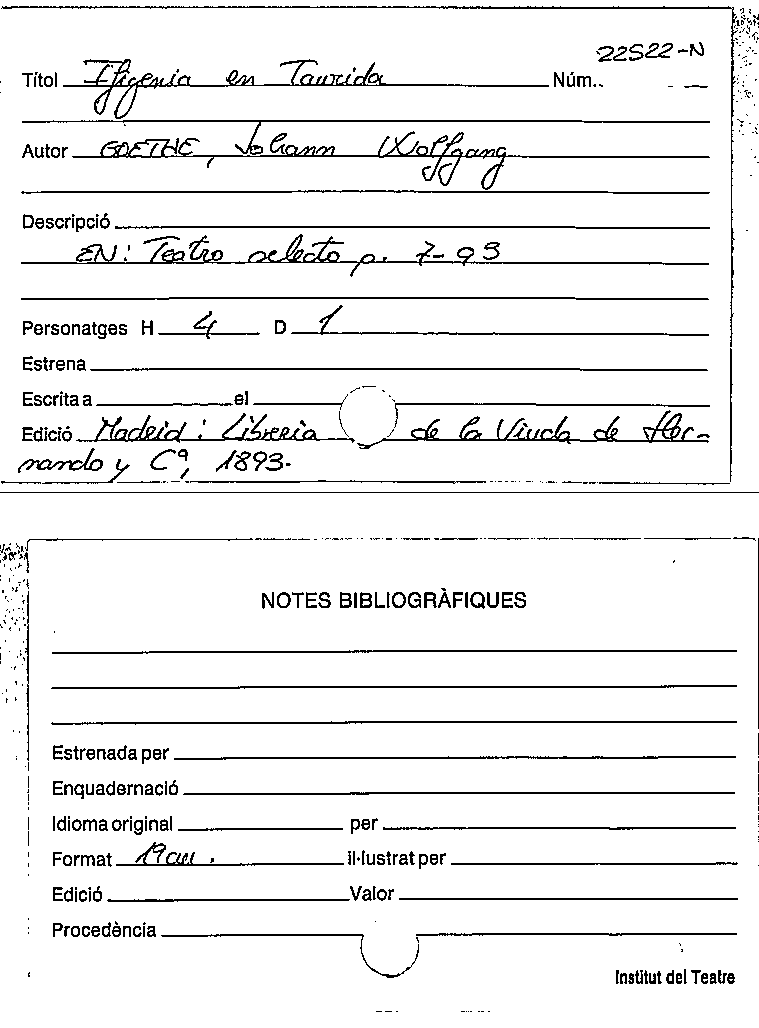 22522-N
Títol Ifigenia en Taurida Núm.
Autor GOETHE, Johann Wolfgang
Descripció
EN: Teatro selecto p. 7-93
Personatges H 4 D 1
Estrena
Escrita a el
Edició Madrid: Libreria de la Viuda de Her-
nando y Cª, 1893.
NOTES BIBLIOGRÀFIQUES
Estrenada per
Enquadernació
Idioma original per
Format 19 cm.
il·lustrat per
Edició Valor
Procedència
Institut del Teatre